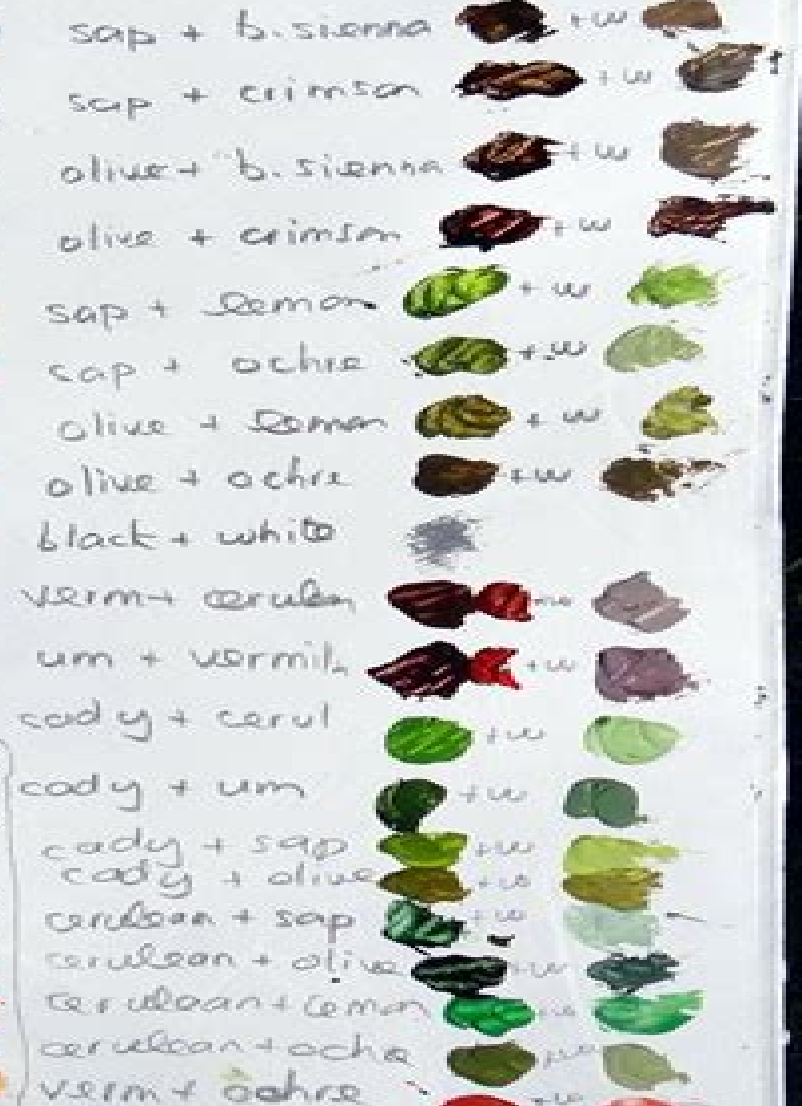 sap + b.sienna +w
sap + crimson +w
olive + b.sienna +w
olive + crimson +w
sap + lemon +w
sap + ochre +w
olive + lemon +w
olive + ochre +w
black + white
verm + cerulean +w
um + vermil. +w
cady + cerul +w
cady + um +w
cady + sap +w
cady + olive +w
cerulean + sap +w
cerulean + olive +w
cerulean + lemon +w
cerulean + ochre +w
verm + ochre +w